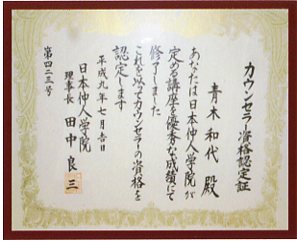 カウンセラー資格認定証
青木和代殿
あなたは日本仲人学院が
定める講座を優秀な成績にて
修了しました
これを以てカウンセラーの資格を
認定します
平成九年七月吉日
日本仲人学院
理事長 田中良三
第四二三号